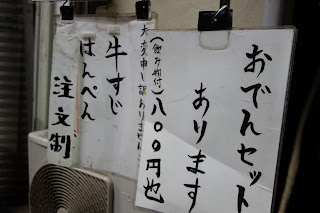 おでんセット
あります
(飲み物付)八〇〇円也
大変申し訳ありません
牛すじ
はんぺん
注文制